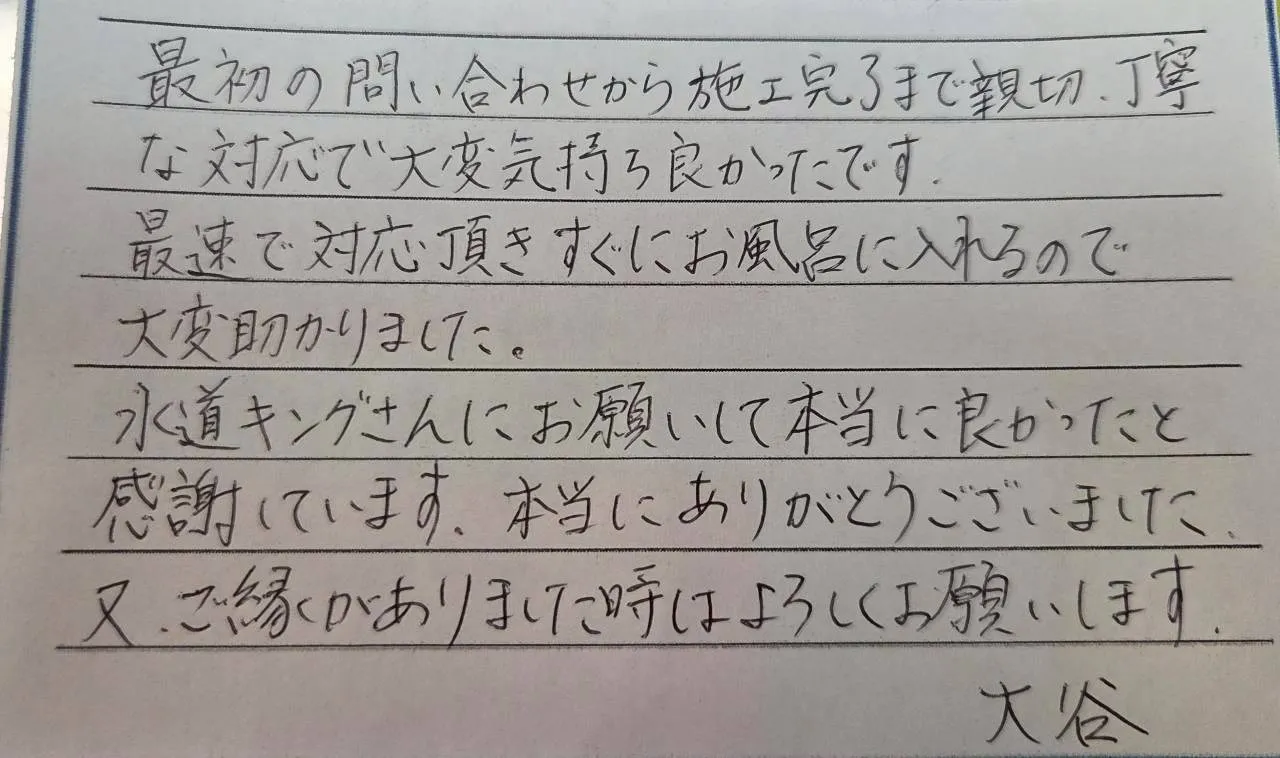 最初の問い合わせから施工完了まで親切、丁寧
な対応で大変気持ち良かったです.
最速で対応頂きすぐにお風呂に入れるので
大変助かりました。
水道キングさんにお願いして本当に良かったと
感謝しています. 本当にありがとうございました.
又、ご縁がありました時はよろしくお願いします.
大谷